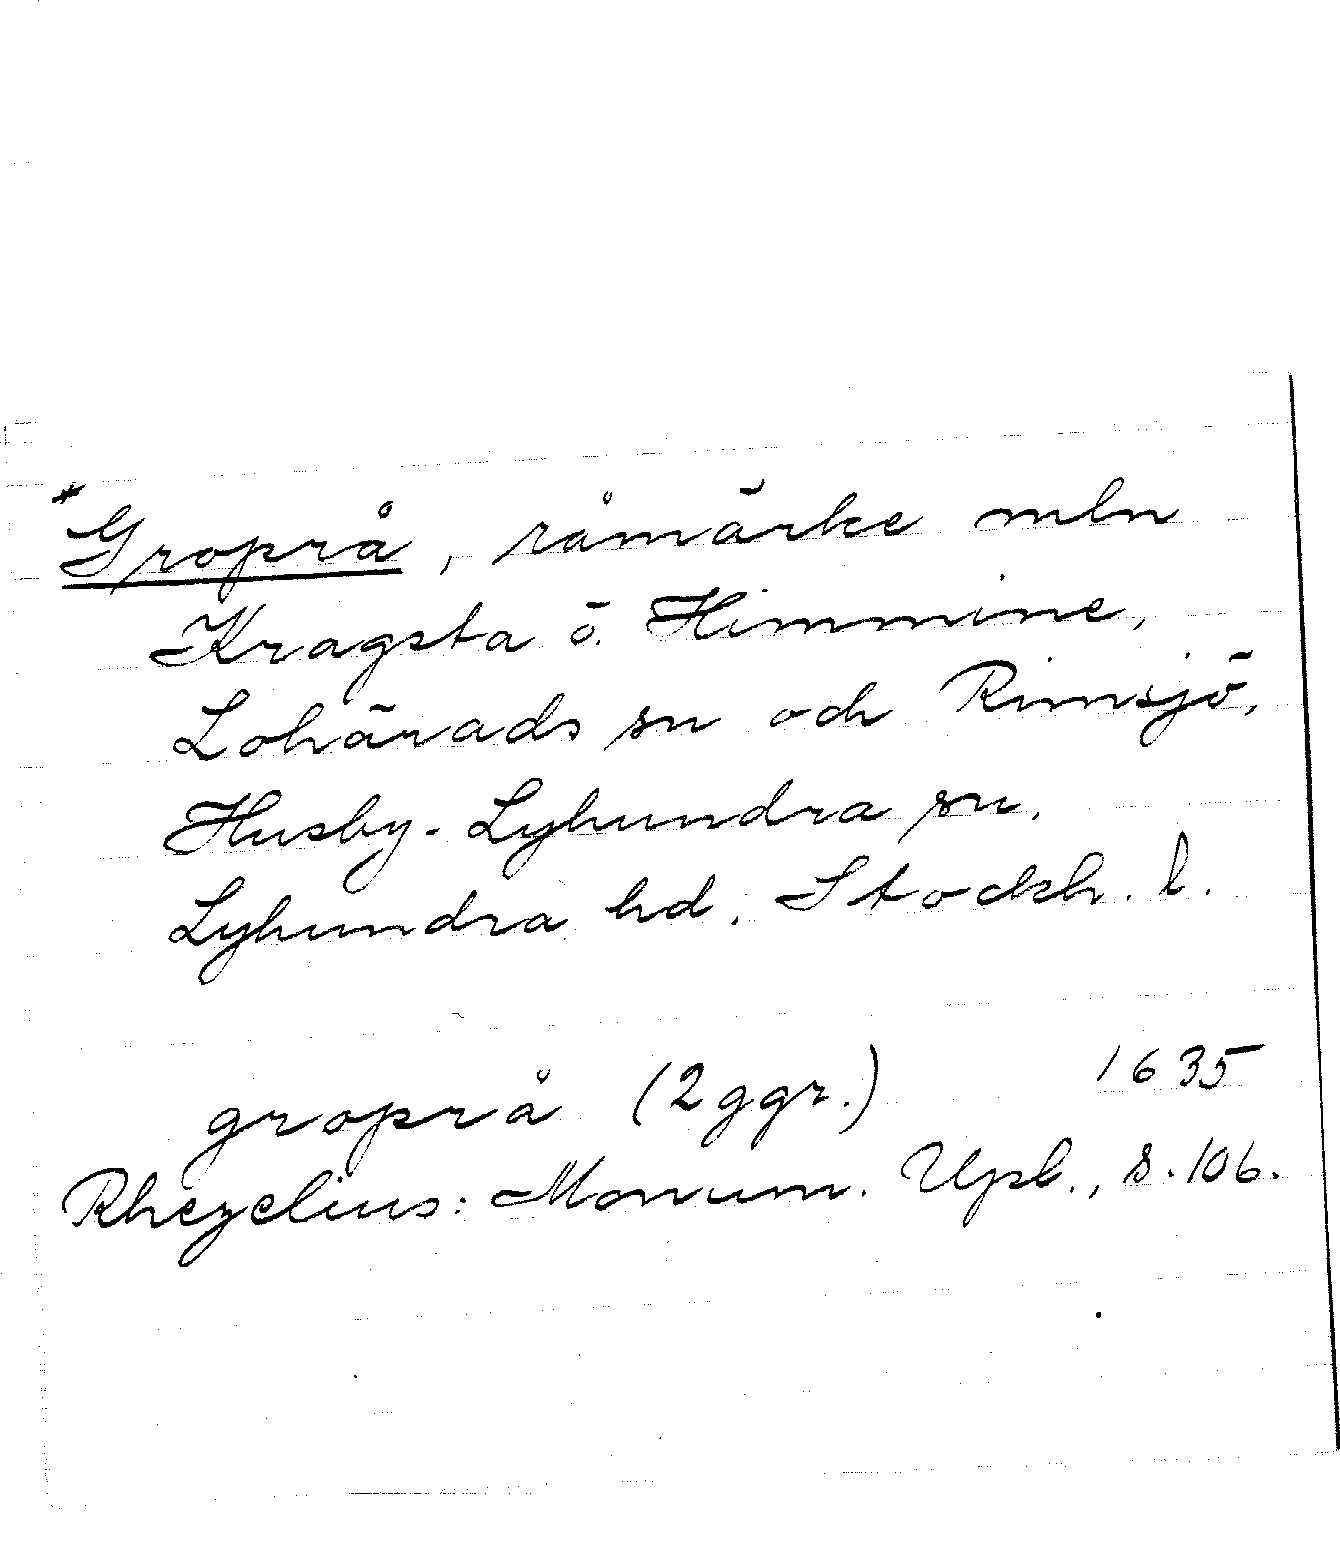 *Groprå, råmärke mln
Kragsta ö. Himmine,
Lohärads sn och Rimsjö,
Husby-Lyhundra sn,
Lyhundra hd, Stockh. l.
groprå (2 ggr.) 1635
Rhezelius: Monum. Upl., s. 106.